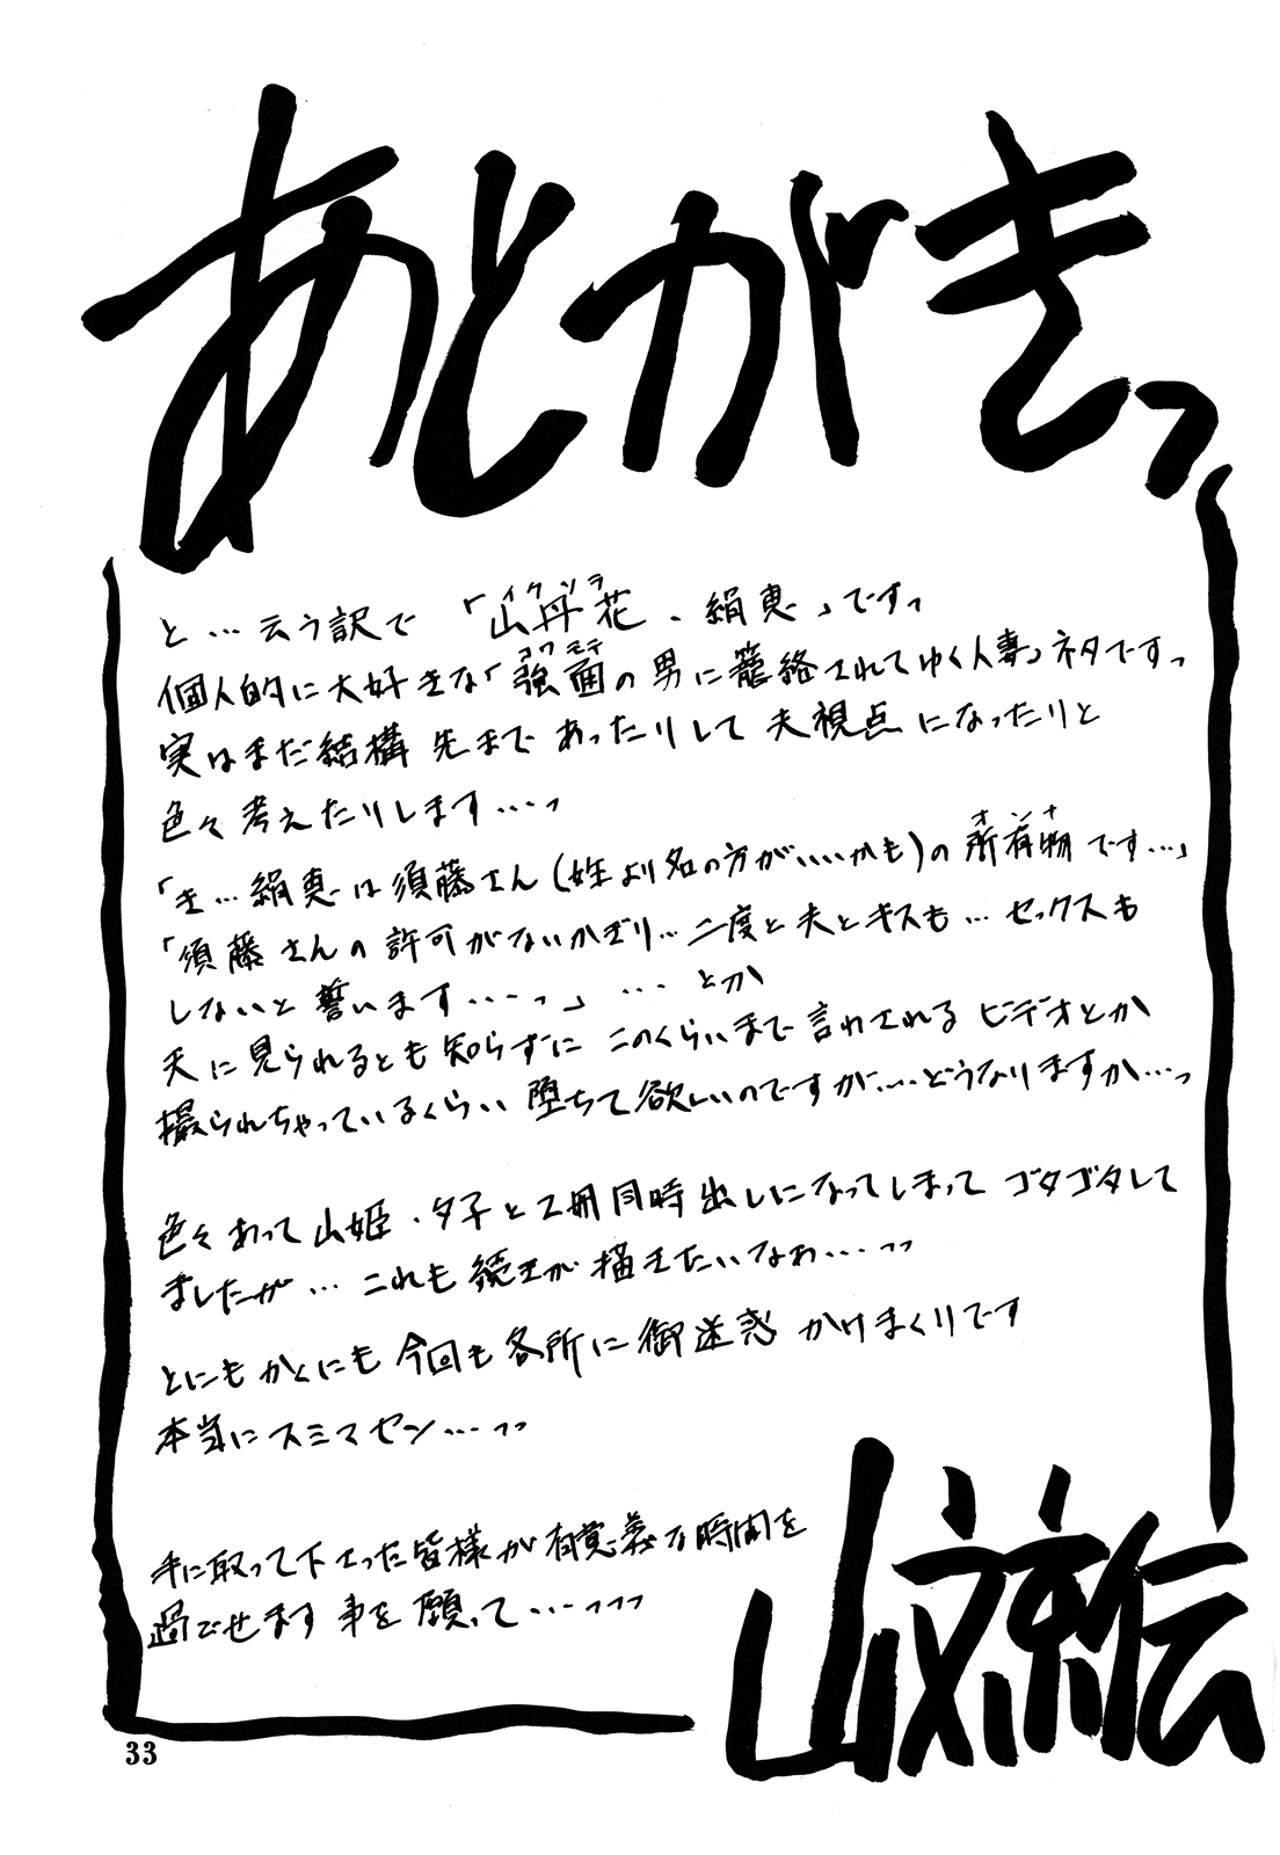 あとがきっ
と…云う訳で「山丹花、絹恵」ですっ
イクソラ
個人的に大好きな「強面の男に籠絡されてゆく人妻」ネタですっ
コワモテ
実はまだ結構先まであったりして夫視点になったりと
色々考えたりします…っ
「き…絹恵は須藤さん(姓より名の方がいいかも)の所有物です…」
オンナ
「須藤さんの許可がないかぎり…二度と夫とキスも…セックスも
しないと誓います…っ」…とか
夫に見られるとも知らずにこのくらいまで言わされるビデオとか
撮られちゃっているくらい堕ちて欲しいのですが…どうなりますか…っ
色々あって山姫・夕子と2冊同時出しになってしまってゴタゴタして
ましたが…これも続きが描きたいなぁ…っっ
とにもかくにも今回も各所に御迷惑かけまくりです
本当にスミマセン…っっ
手に取って下さった皆様が有意義な時間を
過ごせます事を願って…っっっ
山文京伝
33